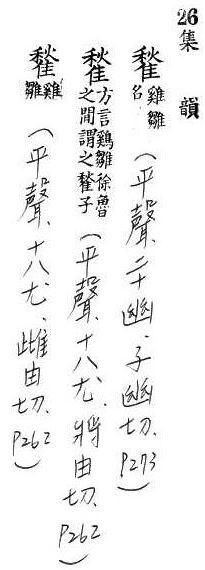 26集韻
雞雛名(平聲.二十幽.子幽切.P273)
方言鷄雛徐魯之間謂之子(平聲.十八尤.將由切.P262)
雞雛(平聲.十八尤.雌由切.P262)